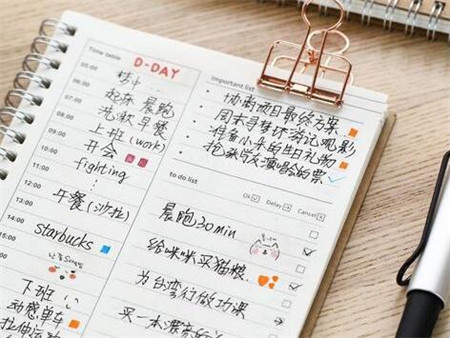 Time table
D-DAY
05:00
06:00
起床 晨跑
07:00
洗漱 早餐
08:00
上班 (work)
09:00
开会
10:00
fighting
11:00
12:00
午餐 (沙拉)
13:00
14:00
starbucks
15:00
下班
动感单车
拉伸运动
Important list
协商项目最终方案
周末寻梦环游记观影
准备小朱的生日礼物
抢张学友演唱会的票
to do list
Ok Delay Cancel
晨跑30min
给咪咪买猫粮
为台湾行做功课
买一本漂亮的